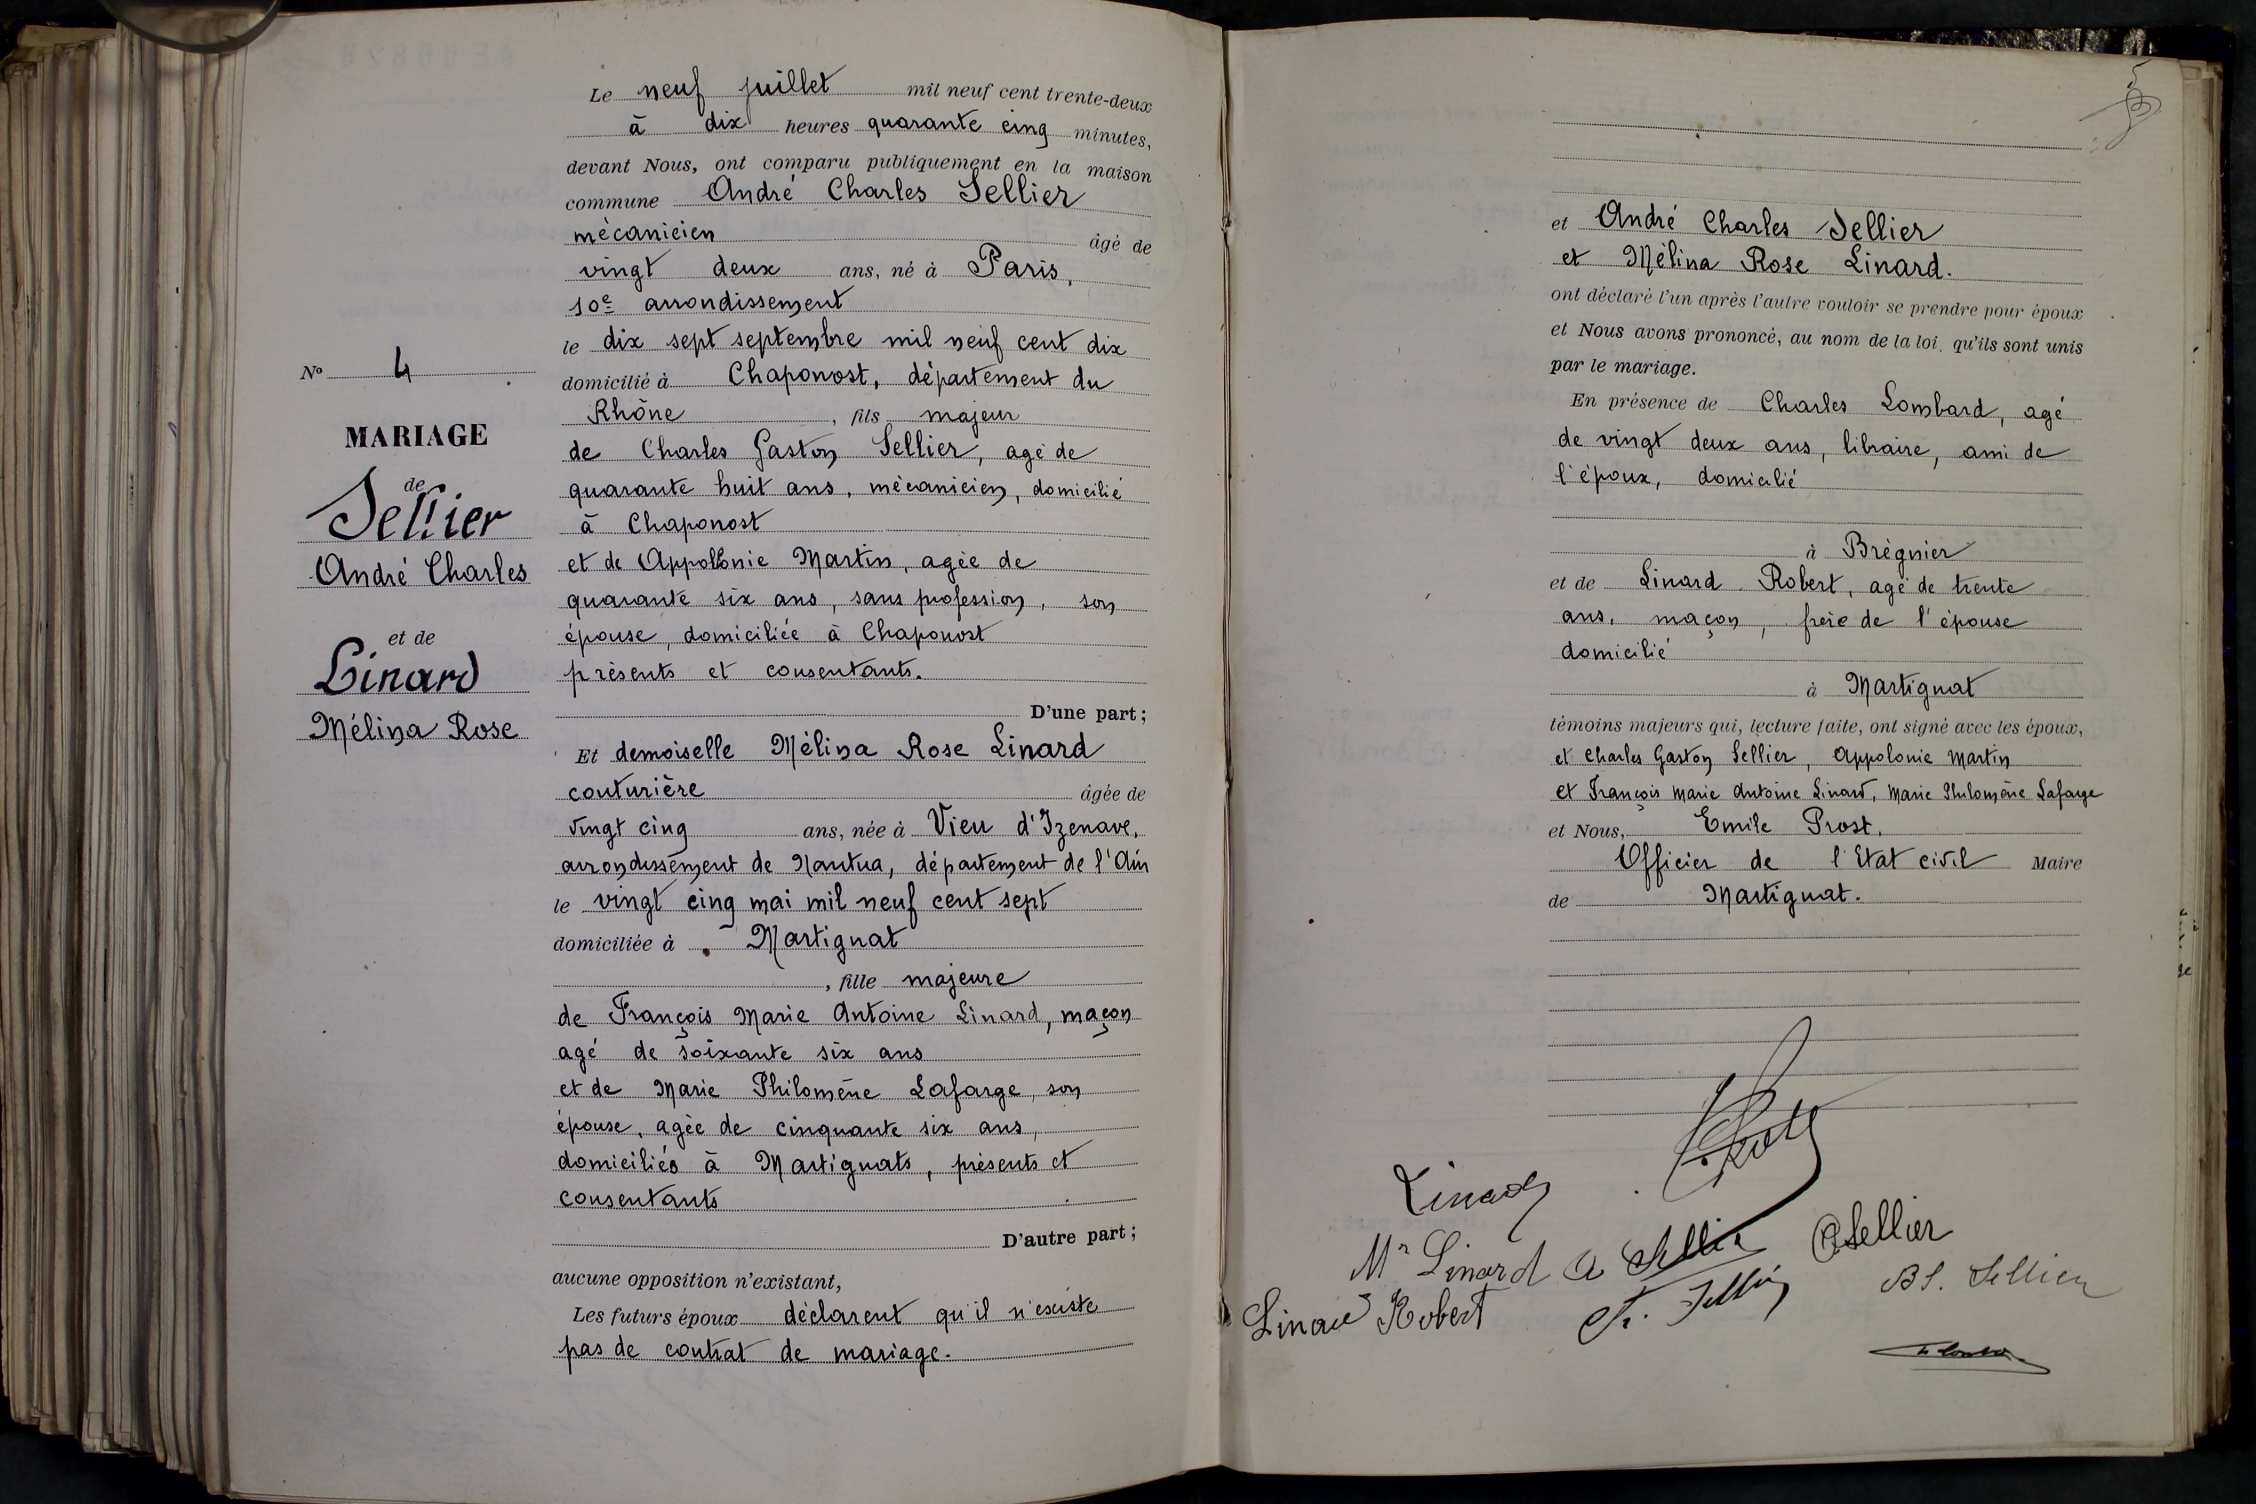 Le neuf juillet mil neuf cent trente-deux
à dix heures quarante cinq minutes,
devant Nous, ont comparu publiquement en la maison
commune André Charles Sellier
mécanicien âgé de
vingt deux ans, né à Paris,
10e arrondissement
le dix sept septembre mil neuf cent dix
domicilié à Chaponost, département du
Rhône, fils majeur
de Charles Gaston Sellier, agé de
quarante huit ans, mécanicien, domicilié
à Chaponost
et de Appollonie Martin, agée de
quarante six ans, sans profession, son
épouse, domiciliée à Chaponost
présents et consentants.
D'une part;
Et demoiselle Mélina Rose Linard
couturière âgée de
vingt cinq ans, née à Vieu d'Izenave,
arrondissement de Nantua, département de l'Ain
le vingt cinq mai mil neuf cent sept
domiciliée à Martignat
, fille majeure
de François Marie Antoine Linard, maçon
agé de soixante six ans
et de Marie Philomène Lafarge, son
épouse, agée de cinquante six ans,
domiciliés à Martignats, présents et
consentants
D'autre part;
aucune opposition n'existant,
Les futurs époux déclarent qu'il n'existe
pas de contrat de mariage.
No 4
MARIAGE
de
Sellier
André Charles
et de
Linard
Mélina Rose
5
et André Charles Sellier
et Mélina Rose Linard.
ont déclaré l'un après l'autre vouloir se prendre pour époux
et Nous avons prononcé, au nom de la loi, qu'ils sont unis
par le mariage.
En présence de Charles Lombard, agé
de vingt deux ans, libraire, ami de
l'époux, domicilié
à Brégnier
et de Linard Robert, agé de trente
ans, maçon, frère de l'épouse
domicilié
à Martignat
témoins majeurs qui, lecture faite, ont signé avec les époux,
et Charles Gaston Sellier, Appolonie Martin
et François Marie Antoine Linard, Marie Philomène Lafarge
et Nous, Emile Prost,
Officier de l'Etat civil Maire
de Martignat.
Linard
Mr Linard A Sellier CSellier
Linard Robert Sellier Sellier